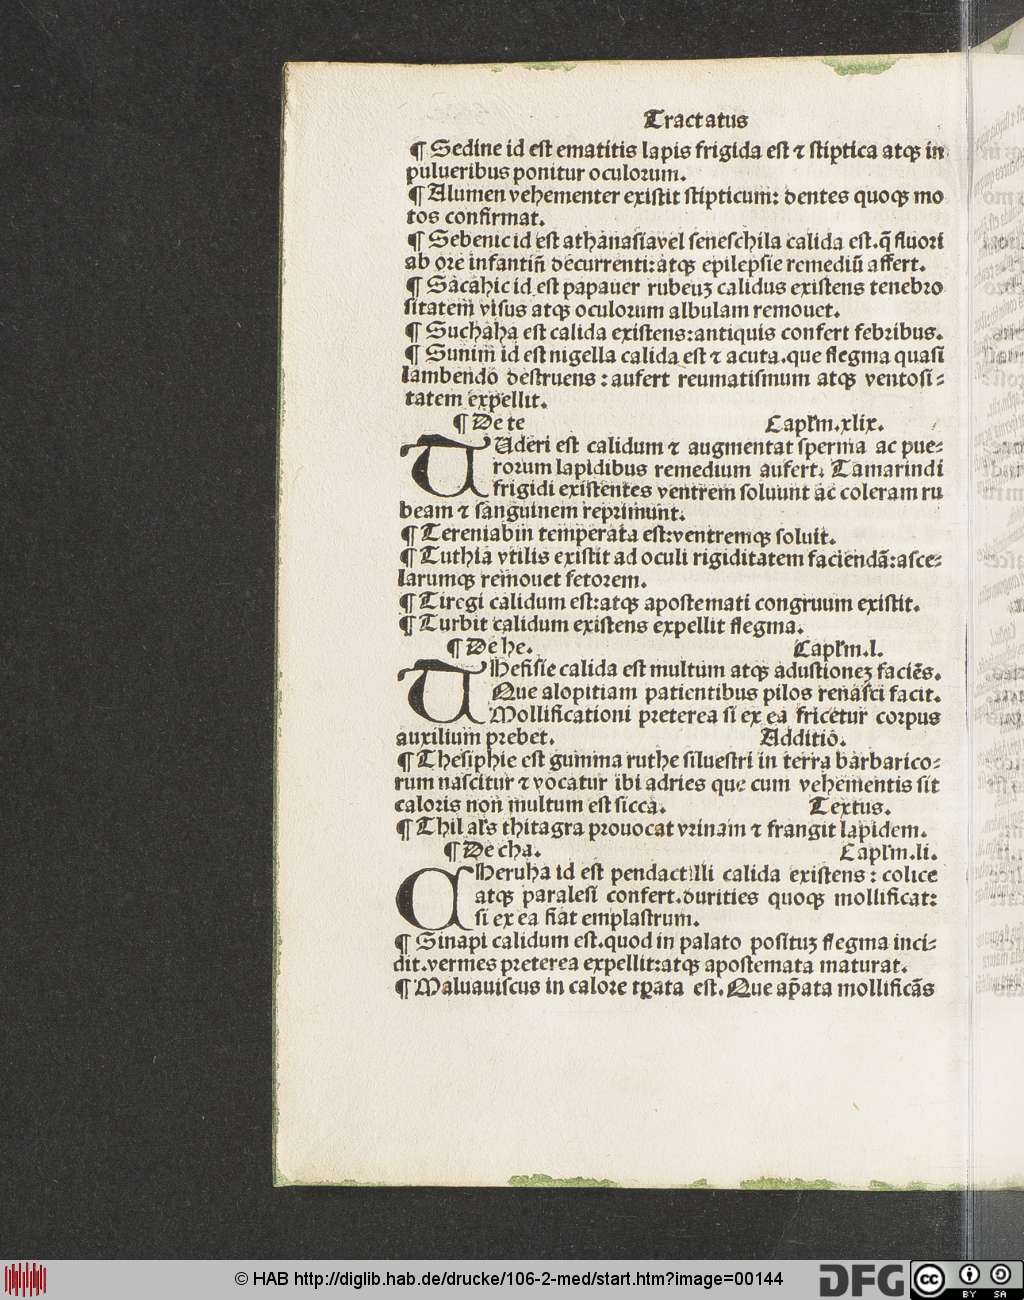 Tractatus
¶ Sedine id est ematitis lapis frigida est ⁊ stiptica atqꝫ in
pulueribus ponitur oculorum.
¶ Alumen vehementer existit stipticum: dentes quoqꝫ mo
tos confirmat.
¶ Sebenic id est athanasiavel seneschila calida est.q̃ fluori
ab ore infantiũ decurrenti:atqꝫ epilepsie remediũ affert.
¶ Sacahic id est papauer rubeuꝫ calidus existens tenebro
sitatem visus atqꝫ oculorum albulam remouet.
¶ Suchaha est calida existens:antiquis confert febribus.
¶ Sunim id est nigella calida est ⁊ acuta.que flegma quasi
lambendo destruens: aufert reumatismum atqꝫ ventosi⸗
tatem expellit.
¶ De te Caplm̃.xlix.
TUderi est calidum ⁊ augmentat sperma ac pue⸗
rorum lapidibus remedium aufert. Tamarindi
frigidi existentes ventrem soluunt ac coleram ru
beam ⁊ sanguinem reprimunt.
¶ Tereniabin temperata est:ventremqꝫ soluit.
¶ Tuthia vtilis existit ad oculi rigiditatem faciendã:asce⸗
larumqꝫ remouet fetorem.
¶ Tiregi calidum est:atqꝫ apostemati congruum existit.
¶ Turbit calidum existens expellit flegma.
¶ De he. Caplm̃.l.
THefisie calida est multum atqꝫ adustioneꝫ faciẽs.
Que alopitiam patientibus pilos renasci facit.
Mollificationi preterea si ex ea fricetur corpus
auxilium prebet. Additio.
¶ Thesiphie est gumma ruthe siluestri in terra barbarico⸗
rum nascitur ⁊ vocatur ibi adries que cum vehementis sit
caloris non multum est sicca. Textus.
¶ Thil als thitagra prouocat vrinam ⁊ frangit lapidem.
¶ De cha. Caplm̃.li.
CHeruha id est pendactilli calida existens: colice
atqꝫ paralesi confert.durities quoqꝫ mollificat:
si ex ea fiat emplastrum.
¶ Sinapi calidum est.quod in palato posituꝫ flegma inci⸗
dit.vermes preterea expellit:atqꝫ apostemata maturat.
¶ Maluauiscus in calore tꝑata est. Que ap̃ata mollificãs
© HAB http://diglib.hab.de/drucke/106-2-med/start.htm?image=00144
DFG
cc BY SA